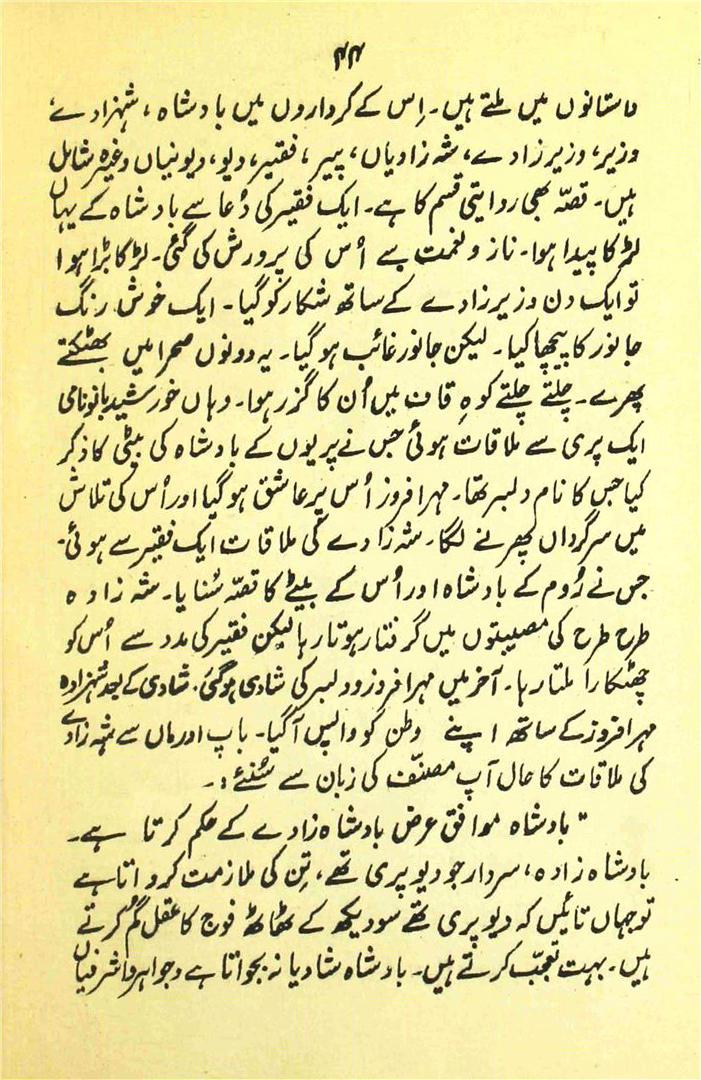 ۴۴
داستانوں میں ملتے ہیں۔ اِس کے کرداروں میں بادشاہ، شہزادے،
وزیر، وزیر زادے، شہ زادیاں، پیر، فقیر، دیو، دیونیاں وغیرہ شامل
ہیں۔ قصّہ بھی روایتی قسم کا ہے۔ ایک فقیر کی دُعا سے بادشاہ کے یہاں
لڑکا پیدا ہوا۔ ناز و نعمت سے اُس کی پرورش کی گئی۔ لڑکا بڑا ہوا
تو ایک دن وزیر زادے کے ساتھ شکار کو گیا۔ ایک خوش رنگ
جانور کا پیچھا کیا۔ لیکن جانور غائب ہو گیا۔ یہ دونوں صحرا میں بھٹکتے
پھرے۔ چلتے چلتے کوہِ قاف میں اُن کا گزر ہوا۔ وہاں خورشید بانو نامی
ایک پری سے ملاقات ہوئی جس نے پریوں کے بادشاہ کی بیٹی کا ذکر
کیا جس کا نام دلبر تھا۔ مہر افروز اُس پر عاشق ہو گیا اور اُس کی تلاش
میں سرگرداں پھرنے لگا۔ شہ زادے کی ملاقات ایک فقیر سے ہوئی۔
جس نے رُوم کے بادشاہ اور اُس کے بیٹے کا قصّہ سُنایا۔ شہ زادہ
طرح طرح کی مصیبتوں میں گرفتار ہوتا رہا لیکن فقیر کی مدد سے اُس کو
چھٹکارا ملتا رہا۔ آخر میں مہر افروز و دلبر کی شادی ہو گئی۔ شادی کے بعد شہزادہ
مہر افروز کے ساتھ اپنے وطن کو واپس آ گیا۔ باپ اور ماں سے شہ زادے
کی ملاقات کا حال آپ مصنّف کی زبان سے سُنئے:۔
"بادشاہ موافق عرض بادشاہ زادے کے حکم کرتا ہے۔
بادشاہ زادہ، سردار جو دیو پری تھے، تِن کی ملازمت کرواتا ہے
تو جہاں تائیں کہ دیو پری تھے سو دیکھ کے ٹھاٹھ فوج کا عقل گُم کرتے
ہیں۔ بہت تعجّب کرتے ہیں۔ بادشاہ شادیانہ بجواتا ہے و جواہر و اشرفیاں